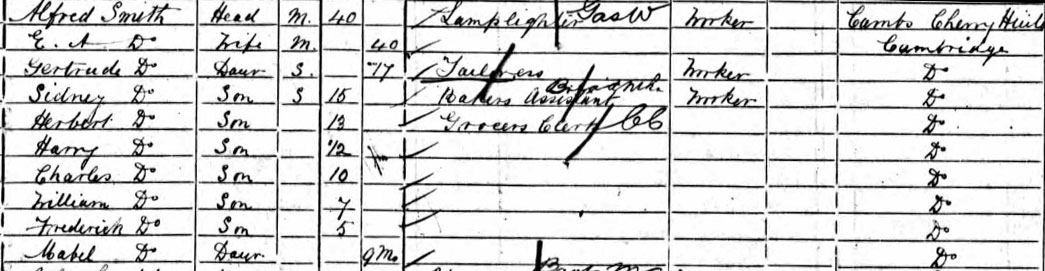 Alfred Smith Head M. 40 Lamplighter GasW Worker Cambs Cherry
E. A Do Wife M. 40 Cambridge
Gertrude Do Daur S. 17 Tailoress Worker Do
Sidney Do Son S 15 Bakers Assistant Worker Do
Herbert Do Son 13 Grocers Clerk CC Do
Harry Do Son 12 Do
Charles Do Son 10 Do
William Do Son 7 Do
Frederick Do Son 5 Do
Mabel Do Daur 9 Mo Do